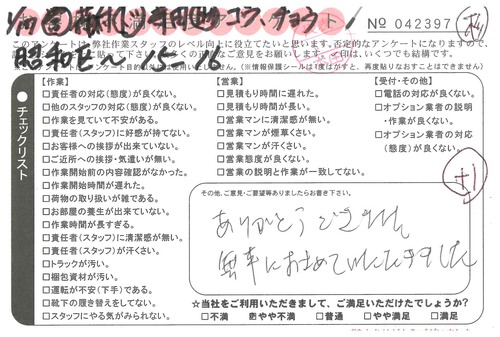 № 042397
このアンケートは、弊社作業スタッフのレベル向上に役立てたいと思います。否定的なアンケートになりますので、
チェックリスト
【作業】
□責任者の対応(態度)が良くない。
□他のスタッフの対応(態度)が良くない。
□作業を見ていて不安がある。
□責任者(スタッフ)に好感が持てない。
□お客様への挨拶が出来ていない。
□ご近所への挨拶・気遣いが無い。
□作業開始前の内容確認がなかった。
□作業開始時間が遅れた。
□荷物の取り扱いが雑である。
□お部屋の養生が出来ていない。
□作業時間が長すぎる。
□責任者(スタッフ)に清潔感が無い。
□責任者(スタッフ)が汗くさい。
□トラックが汚い。
□梱包資材が汚い。
□運転が不安(下手)である。
□靴下の履き替えをしてない。
□スタッフにやる気がみられない。
【営業】
□見積もり時間に遅れた。
□見積もり時間が長い。
□営業マンに清潔感が無い。
□営業マンが煙草くさい。
□営業マンが汗くさい。
□営業態度が良くない。
□営業の説明と作業が一致してない。
【受付・その他】
□電話の対応が良くない。
□オプション業者の説明
・作業が良くない。
□オプション業者の対応
(態度)が良くない。
その他、ご意見・ご要望等ありましたらお書き下さい。
ありがとうございました
無事におさめていただきました
☆当社をご利用いただきまして、ご満足いただけてしょうか?
□不満 □やや不満 □普通 □やや満足 □満足